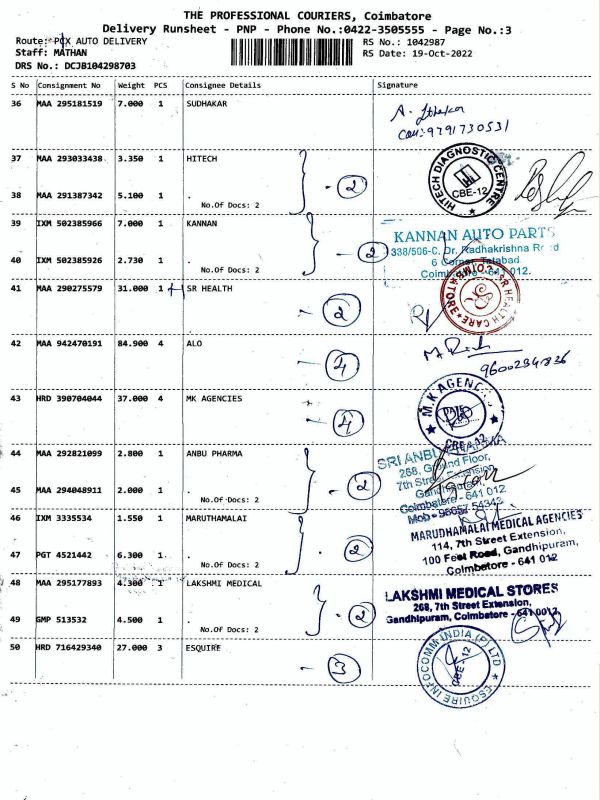 THE PROFESSIONAL COURIERS, Coimbatore
Delivery Runsheet - PNP - Phone No.:0422-3505555 - Page No.:3
Route: PCX AUTO DELIVERY
RS No.: 1042987
Staff: MATHAN
RS Date: 19-Oct-2022
DRS No.: DCJB104298703
S No Consignment No Weight PCS Consignee Details Signature
36 MAA 295181519 7.000 1 SUDHAKAR
9791730531
37 MAA 293033438 3.350 1 HITECH
2
HITECH DIAGNOSTIC CENTRE
CBE-12
38 MAA 291387342 5.100 1 .
No.Of Docs: 2
39 IXM 502385966 7.000 1 KANNAN
2
KANNAN AUTO PARTS
338/506-C, Dr. Radhakrishna Road
6 Corner, Tatabad
Coimbatore - 641 012.
40 IXM 502385926 2.730 1 .
No.Of Docs: 2
41 MAA 290275579 31.000 1 +1 SR HEALTH
2
SR HEALTH CARE COIMBATORE
42 MAA 942470191 84.900 4 ALO
4
43 HRD 390704044 37.000 4 MK AGENCIES
4
M.K AGENCIES
CBE-12
44 MAA 292821099 2.800 1 ANBU PHARMA
2
SRI ANBU PHARMA
268, Ground Floor,
7th Street Extension
Gandhipuram
Coimbatore - 641 012
Mob - 98657 54343
45 MAA 294048911 2.000 1 .
No.Of Docs: 2
46 IXM 3335534 1.550 1 MARUTHAMALAI
2
MARUDHAMALAI MEDICAL AGENCIES
114, 7th Street Extension,
100 Feet Road, Gandhipuram,
Coimbatore - 641 012
47 PGT 4521442 6.300 1 .
No.Of Docs: 2
48 MAA 295177893 4.300 1 LAKSHMI MEDICAL
2
LAKSHMI MEDICAL STORES
268, 7th Street Extension,
Gandhipuram, Coimbatore - 641 0012.
49 GMP 513532 4.500 1 .
No.Of Docs: 2
50 HRD 716429340 27.000 3 ESQUIRE
3
ESQUIRE INFOCOMM INDIA (P) LTD
CBE-12